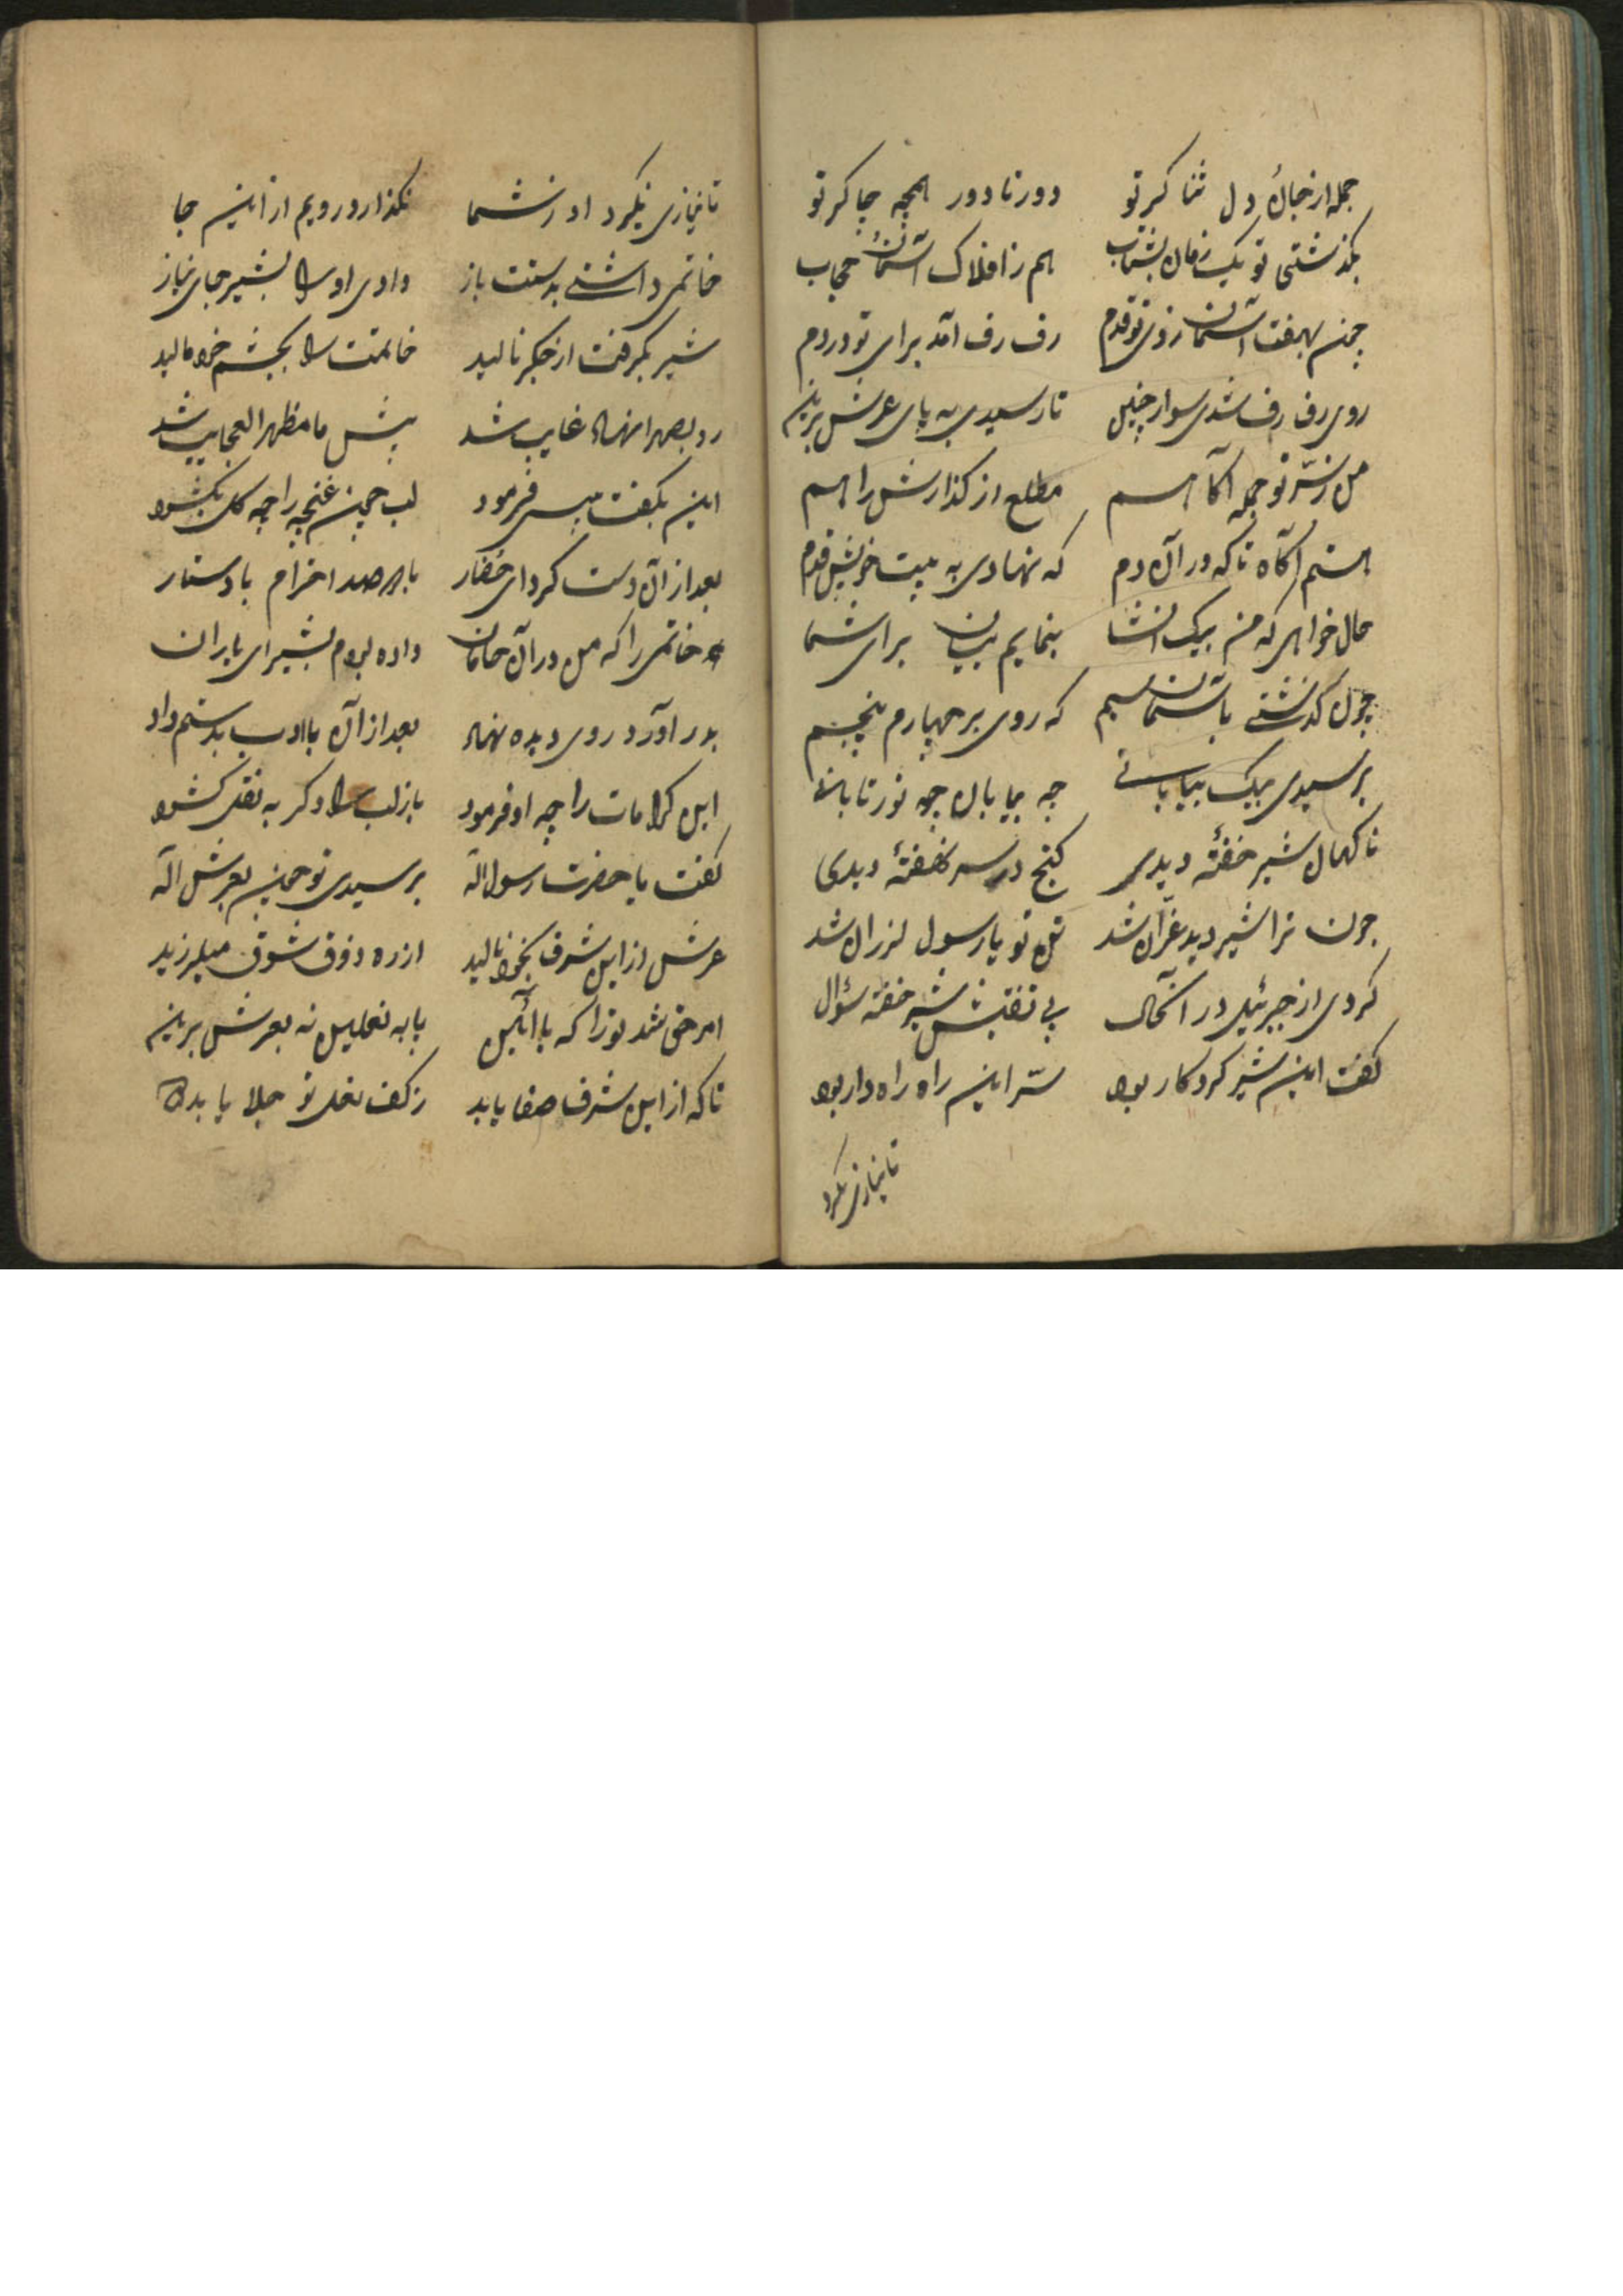 جمله از جان و دل ثنا کر تو دور تا دور همچه چاکر تو
بگذشتی تو یک زمان بشتاب هم ز افلاک آسمان حجاب
چون بهفت آسمان زدی تو قدم رف رف آمد برای تو در دم
روی رف رف شدی سوار چنین تا رسیدی به پای عرش برین
من ز سرّ تو جمله آکاهم مطلع از کذارش راهم
هستم آکاه تا که در آن دم که نهادی به بیت خویش قدم
حال خواهی که من بیک انشا بنمایم بیان برای شما
چون کذشتی بآسمان سیم که روی بر چهارم پنجم
برسیدی بیک بیابانی چه بیابان چه نور تابانی
ناکهان شیر خفتهٔ دیدی کنج در سر نهفتهٔ دیدی
چون ترا شیر دید غرّان شد تن تو یا رسول لرزان شد
کردی از جبرئیل در آنحال پی تفتیش شیر خفته سؤال
کفت این شیر کردکار بود سرّ این راه راه دار بود
تا نیازی نکرد
تا نیازی نکیرد او ز شما نکذارد رویم از این جا
خاتمی داشتی بدستت باز دادی او را بشیر جای نیاز
شیر بکرفت از جکر نالید خاتمت را بچشم خود مالید
رد بصحرا نهاد غایب شد پیش ما مظهر العجایب شد
این بکفت پس فرمود لب چون غنچه را چه کل بکشود
بعد از آن دست کرد ای حضار با هر صد احترام با دستار
خاتمی را که من در آن داده بودم بشیر ای یاران
بدر آورد روی دیده نهاد بعد از آن با ادب بدستم داد
این کرامات را چه او فرمود باز لب را دکر به نقل کشود
کفت یا حضرت رسول اله برسیدی تو چون بعرش اله
عرش از این شرف بخود نالید از ره ذوق شوق میلرزید
امر حق شد تو را که با آئین پا به نعلین نه بعرش برین
تا که از این شرف صفا یابد ز کف نعل تو جلا یابد